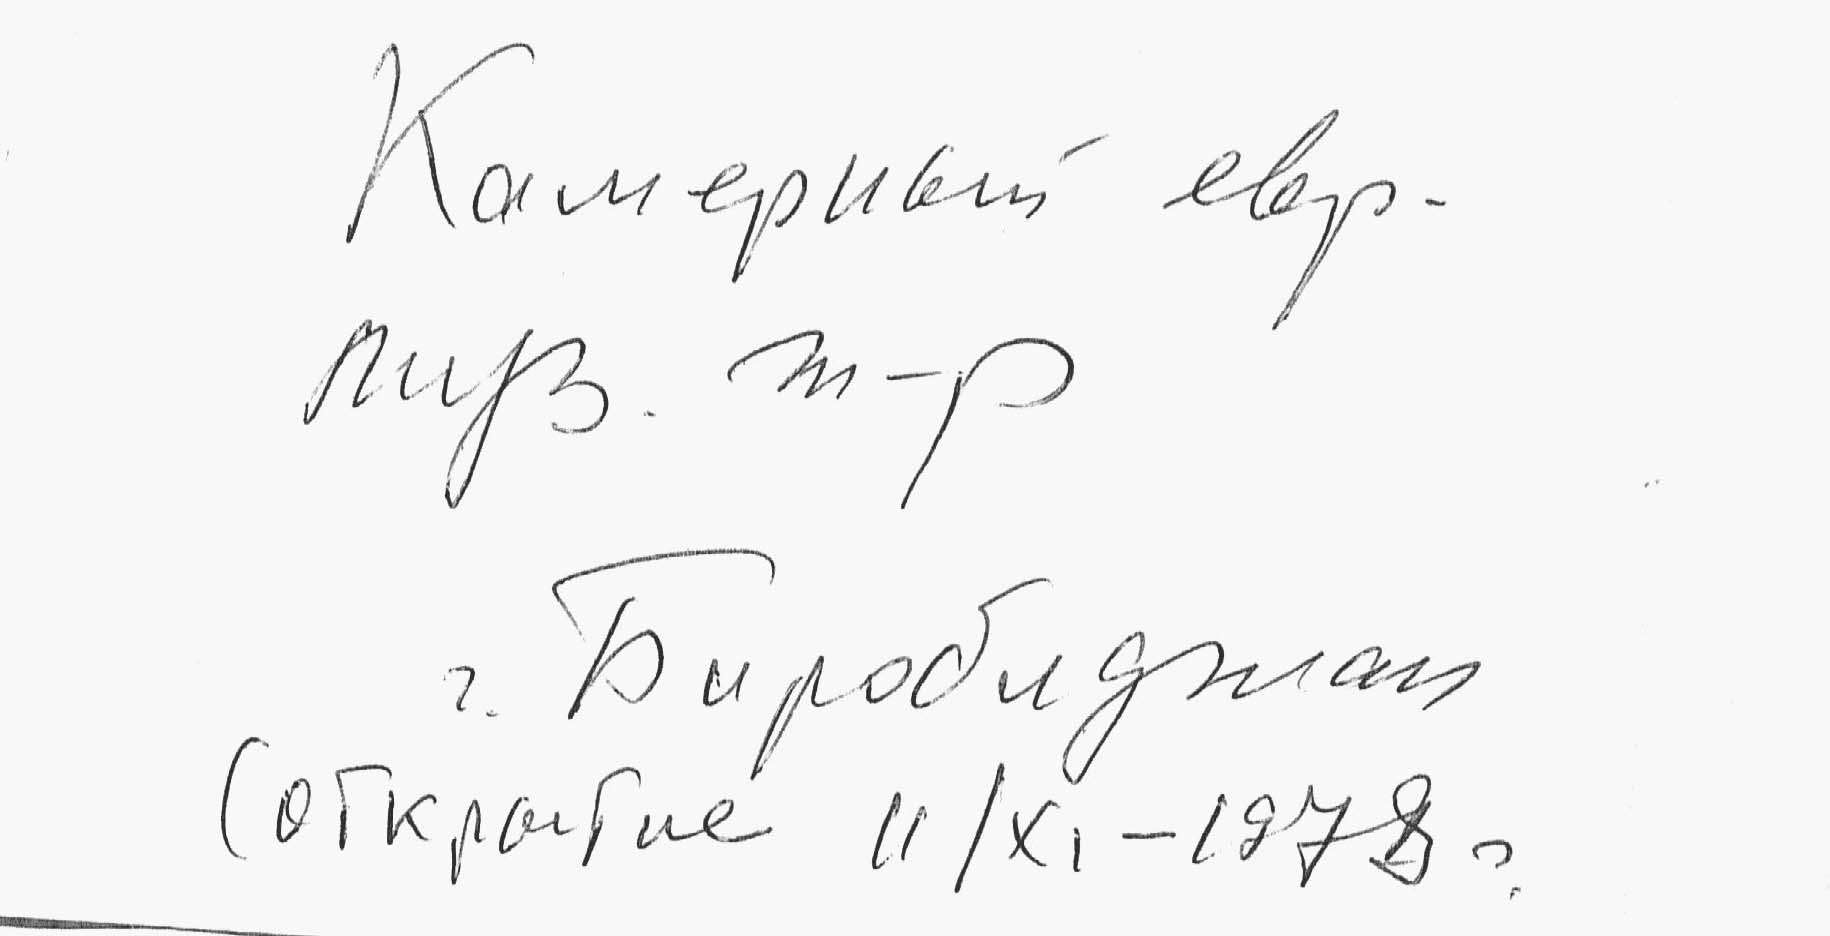 Камерный евр.
муз. т-р
г. Биробиджан
(открытие 11/XI – 1978 г.